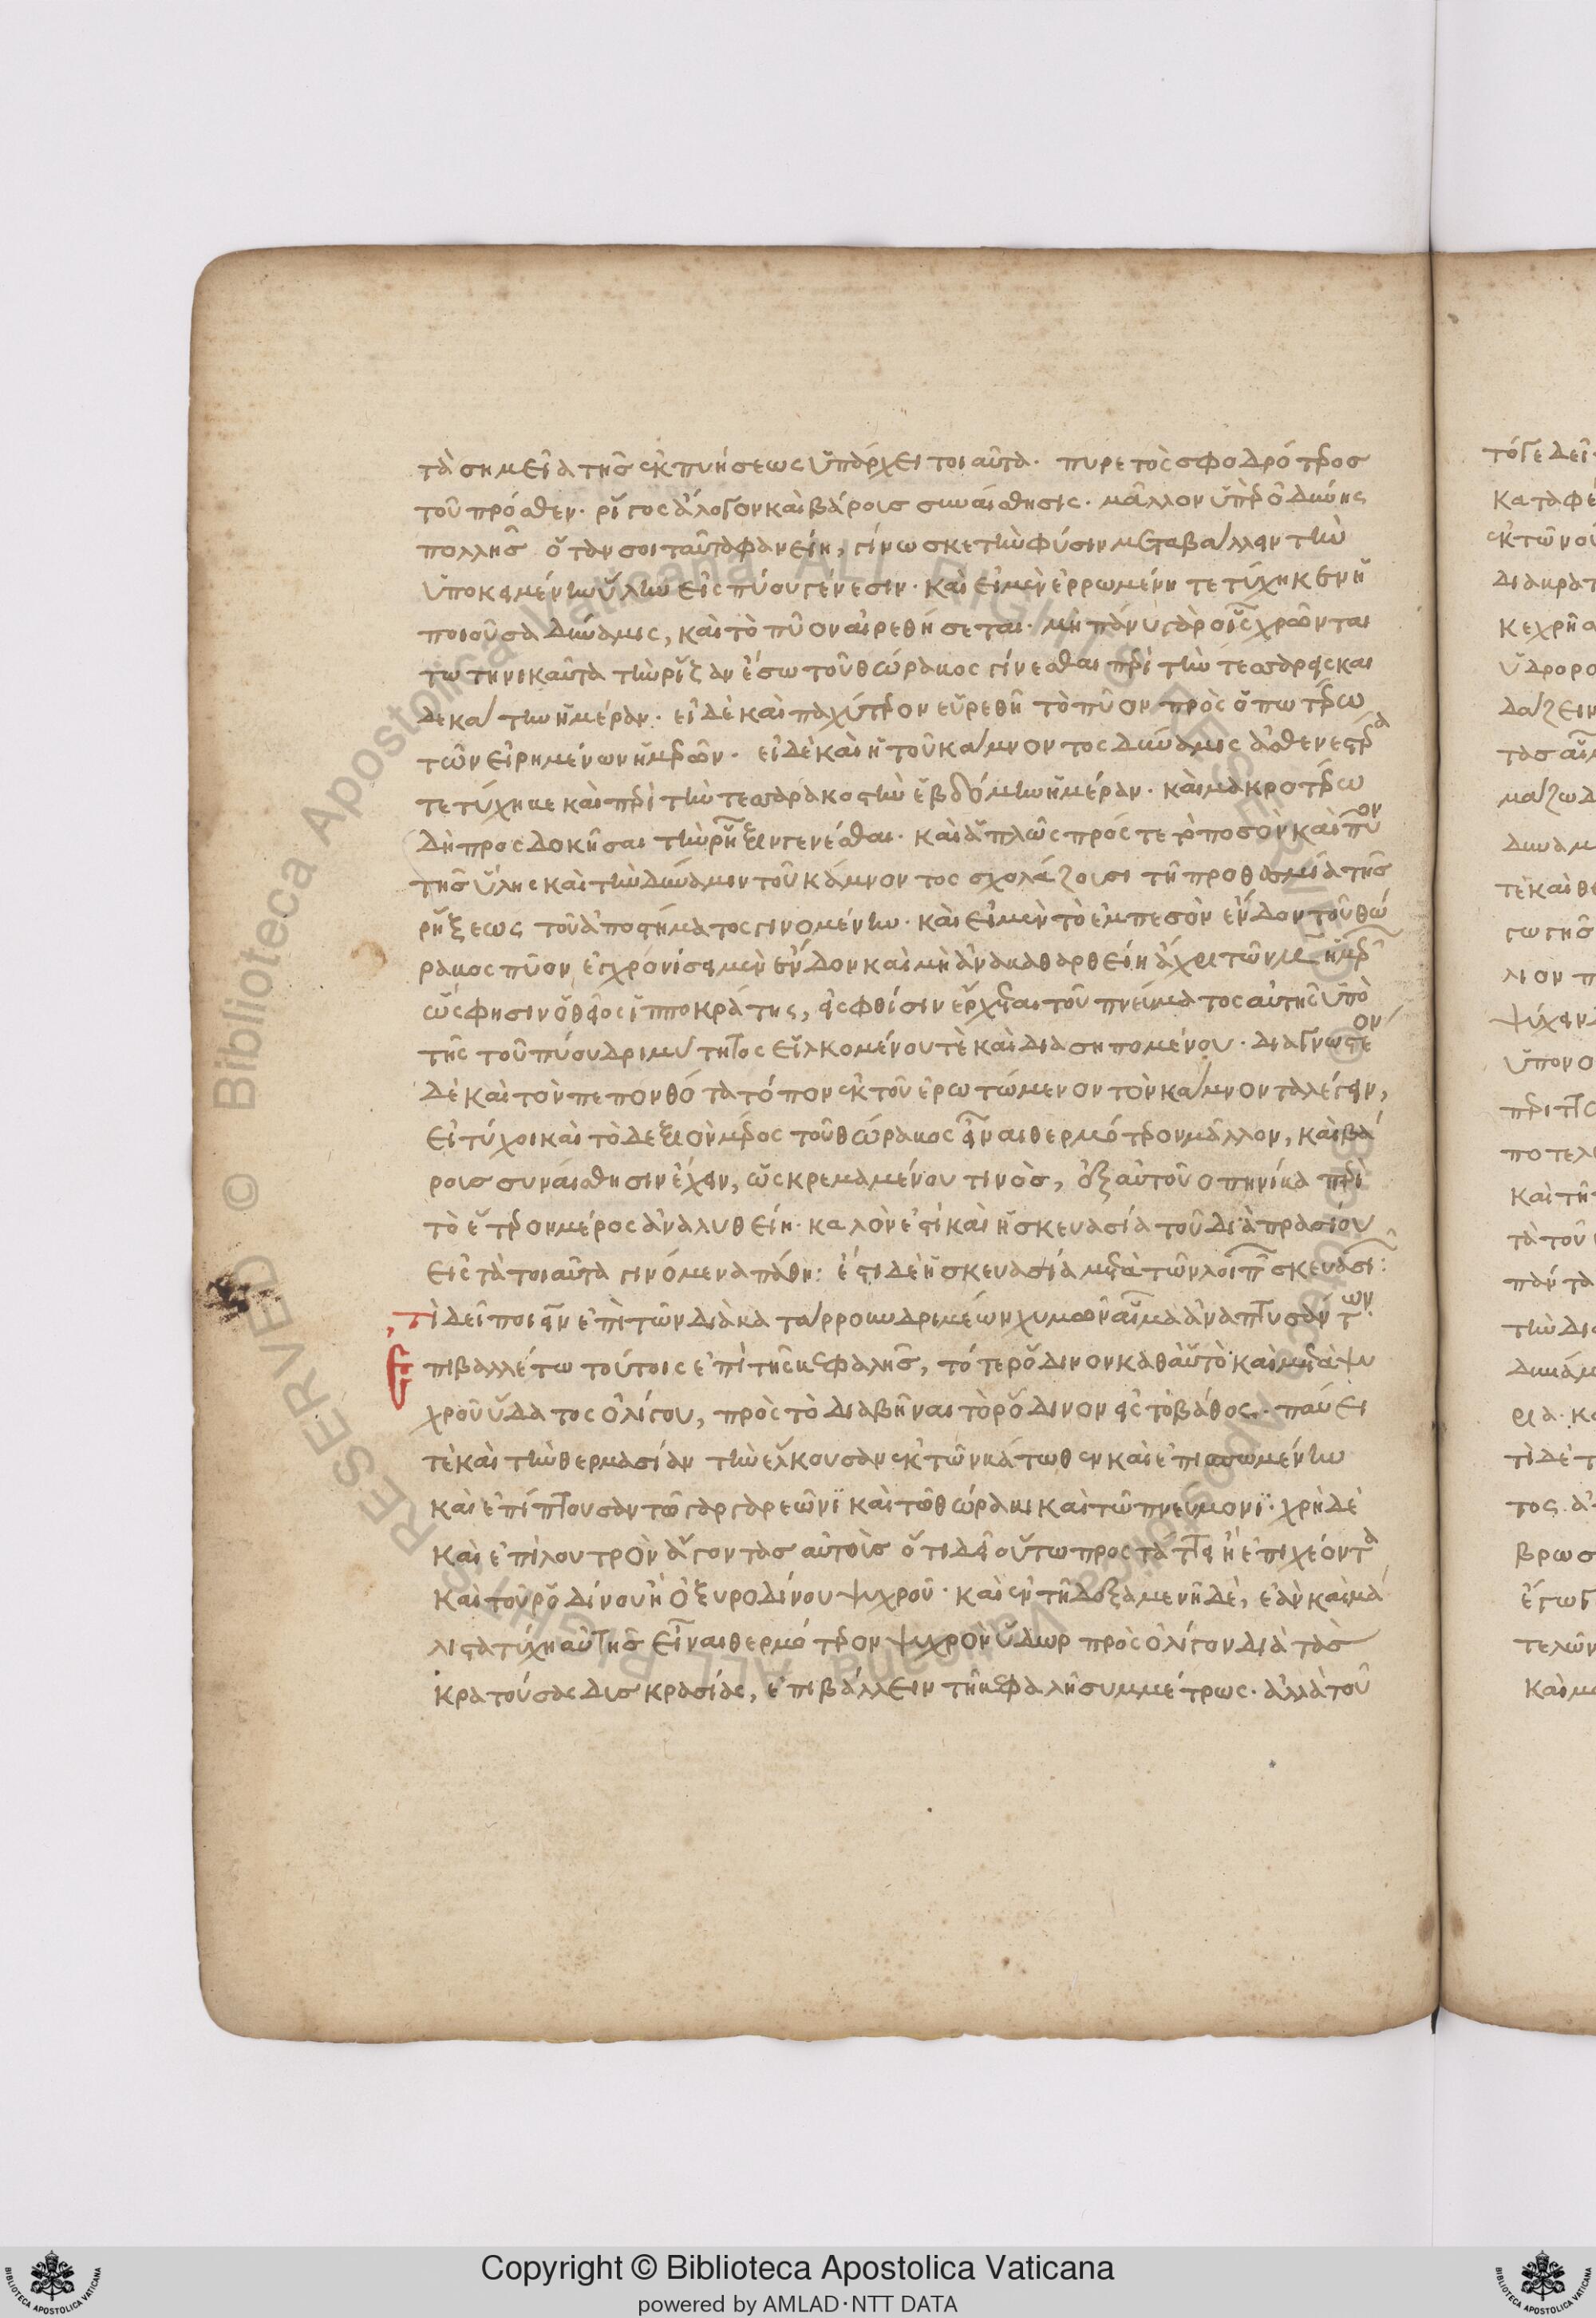 τὰ σημεῖα τῆς ἐκπυήσεως ὑπάρχει τοιαῦτα· πυρετὸς σφοδρότερος
τοῦ πρόσθεν· ῥῖγος ἄλογον καὶ βάρους συναίσθησις· μᾶλλον ὑπὲρ ὀδύνης
πολλῆς ὅταν σοι ταῦτα φανείη, γίνωσκε τὴν φύσιν μεταβάλλειν τὴν
ὑποκειμένην ὕλην εἰς πύου γένεσιν· καὶ εἰ μὲν ἐρρωμένη τετύχηκεν ἡ
ποιοῦσα δύναμις, καὶ τὸ πῦον αἱρεθήσεται· μὴ πάνυ γὰρ οἷς χρῶνται
τω τηνικαῦτα τὴν ῥῖξαν ἔσω τοῦ θώρακος γίνεσθαι περὶ τὴν τεσσαρεσκαι
δεκάτην ἡμέραν· εἰ δὲ καὶ παχύτερον εὑρεθῆ τὸ πῦον πρὸς ὅπωτέρω
τῶν εἰρημένων ἡμερῶν· εἰ δὲ καὶ ἡ τοῦ κάμνοντος δύναμις ἀσθενεστέρα
τετύχηκε καὶ περὶ τὴν τεσσαρακοστὴν ἑβδόμην ἡμέραν· καὶ μακροτέρω
δὴ προσδοκῆσαι τὴν ῥῆξιν γενέσθαι· καὶ ἁπλῶς πρός τε τὸ ποσὸν καὶ ποιὸν
τῆς ὕλης καὶ τὴν δύναμιν τοῦ κάμνοντος σχολάζουσι τῆ προθεσμία τῆς
ῥήξεως τοῦ ἀποστήματος γινομένην· καὶ εἰ μὲν τὸ ἐμπεσὸν ἔνδον τοῦ θώ
ρακος πῦον ἐγχρόνισει μὲν ἔνδον καὶ μὴ ἀνακαθαρθείη ἄχρι τῶν μ ἡμερῶν
ὥς φησιν ὁ θεῖος ἱπποκράτης, εἰς φθίσιν ἔρχεται τοῦ πνεύματος αὐτῆς ὑπὸ
τῆς τοῦ πύου δριμύτητος εἱλκομένου τὲ καὶ διασηπομένου· διαγνωστέον
δὲ καὶ τὸν πεπονθότα τόπον ἐκ τοῦ ἐρωτώμενον τὸν κάμνοντα λέγειν,
εἰ τύχοι καὶ τὸ δεξιὸν μέρος τοῦ θώρακος εἶναι θερμότερον μᾶλλον, καὶ βά
ρους συναίσθησιν ἔχειν, ὡς κρεμαμένου τινὸς, ἐξ αὐτοῦ ὁπηνίκα περὶ
τὸ ἕτερον μέρος ἀναλυθείη· καλὸν ἐστὶ καὶ ἡ σκευασία τοῦ διὰ πρασίου
εἰς τὰ τοιαῦτα γινόμενα πάθη: ἔστι δὲ ἡ σκευασία μετὰ τῶν λοιπῶν σκευασι:
Τί δεῖ ποιεῖν ἐπὶ τῶν διὰ κατάρρουν δριμέων χυμῶν αἷμα ἀναπτυσάντων·
Ἐπιβαλλέτω τούτοις ἐπὶ τῆς κεφαλῆς, τότε ῥόδινον καθαὑτὸ καὶ μετὰ ψυ
χροῦ ὕδατος ὀλίγου, πρὸς τὸ διαβῆναι τὸ ῥόδινον εἰς τὸ βάθος· παύει
τὲ καὶ τὴν θερμασίαν τὴν ἕλκουσαν ἐκ τῶν κάτωθεν καὶ ἐπισπωμένην
καὶ ἐπίπτουσαν τῶ γαργαρεῶνϊ καὶ τῶ θώρακι καὶ τῶ πνεύμονϊ· χρὴ δὲ
καὶ ἐπὶ λουτρὸν ἄγοντας αὐτοὺς ὅτι δεῖ οὕτω προστάττειν ἢ ἐπιχέοντα
καὶ τοῦ ῥοδίνου ἢ ὀξυροδίνου ψυχροῦ· καὶ ἐν τῆ δεξαμενῆ δὲ, ἐὰν καὶ μά
λιστα τύχη αὐτῆς εἶναι θερμότερον ψυχρὸν ὕδωρ πρὸς ὀλίγον διὰ τὰς
κρατούσας δυσκρασίας, ἐπιβάλλειν τῆ κεφαλῆ συμμέτρως· ἀλλὰ τοῦ
Copyright © Biblioteca Apostolica Vaticana
powered by AMLAD·NTT DATA